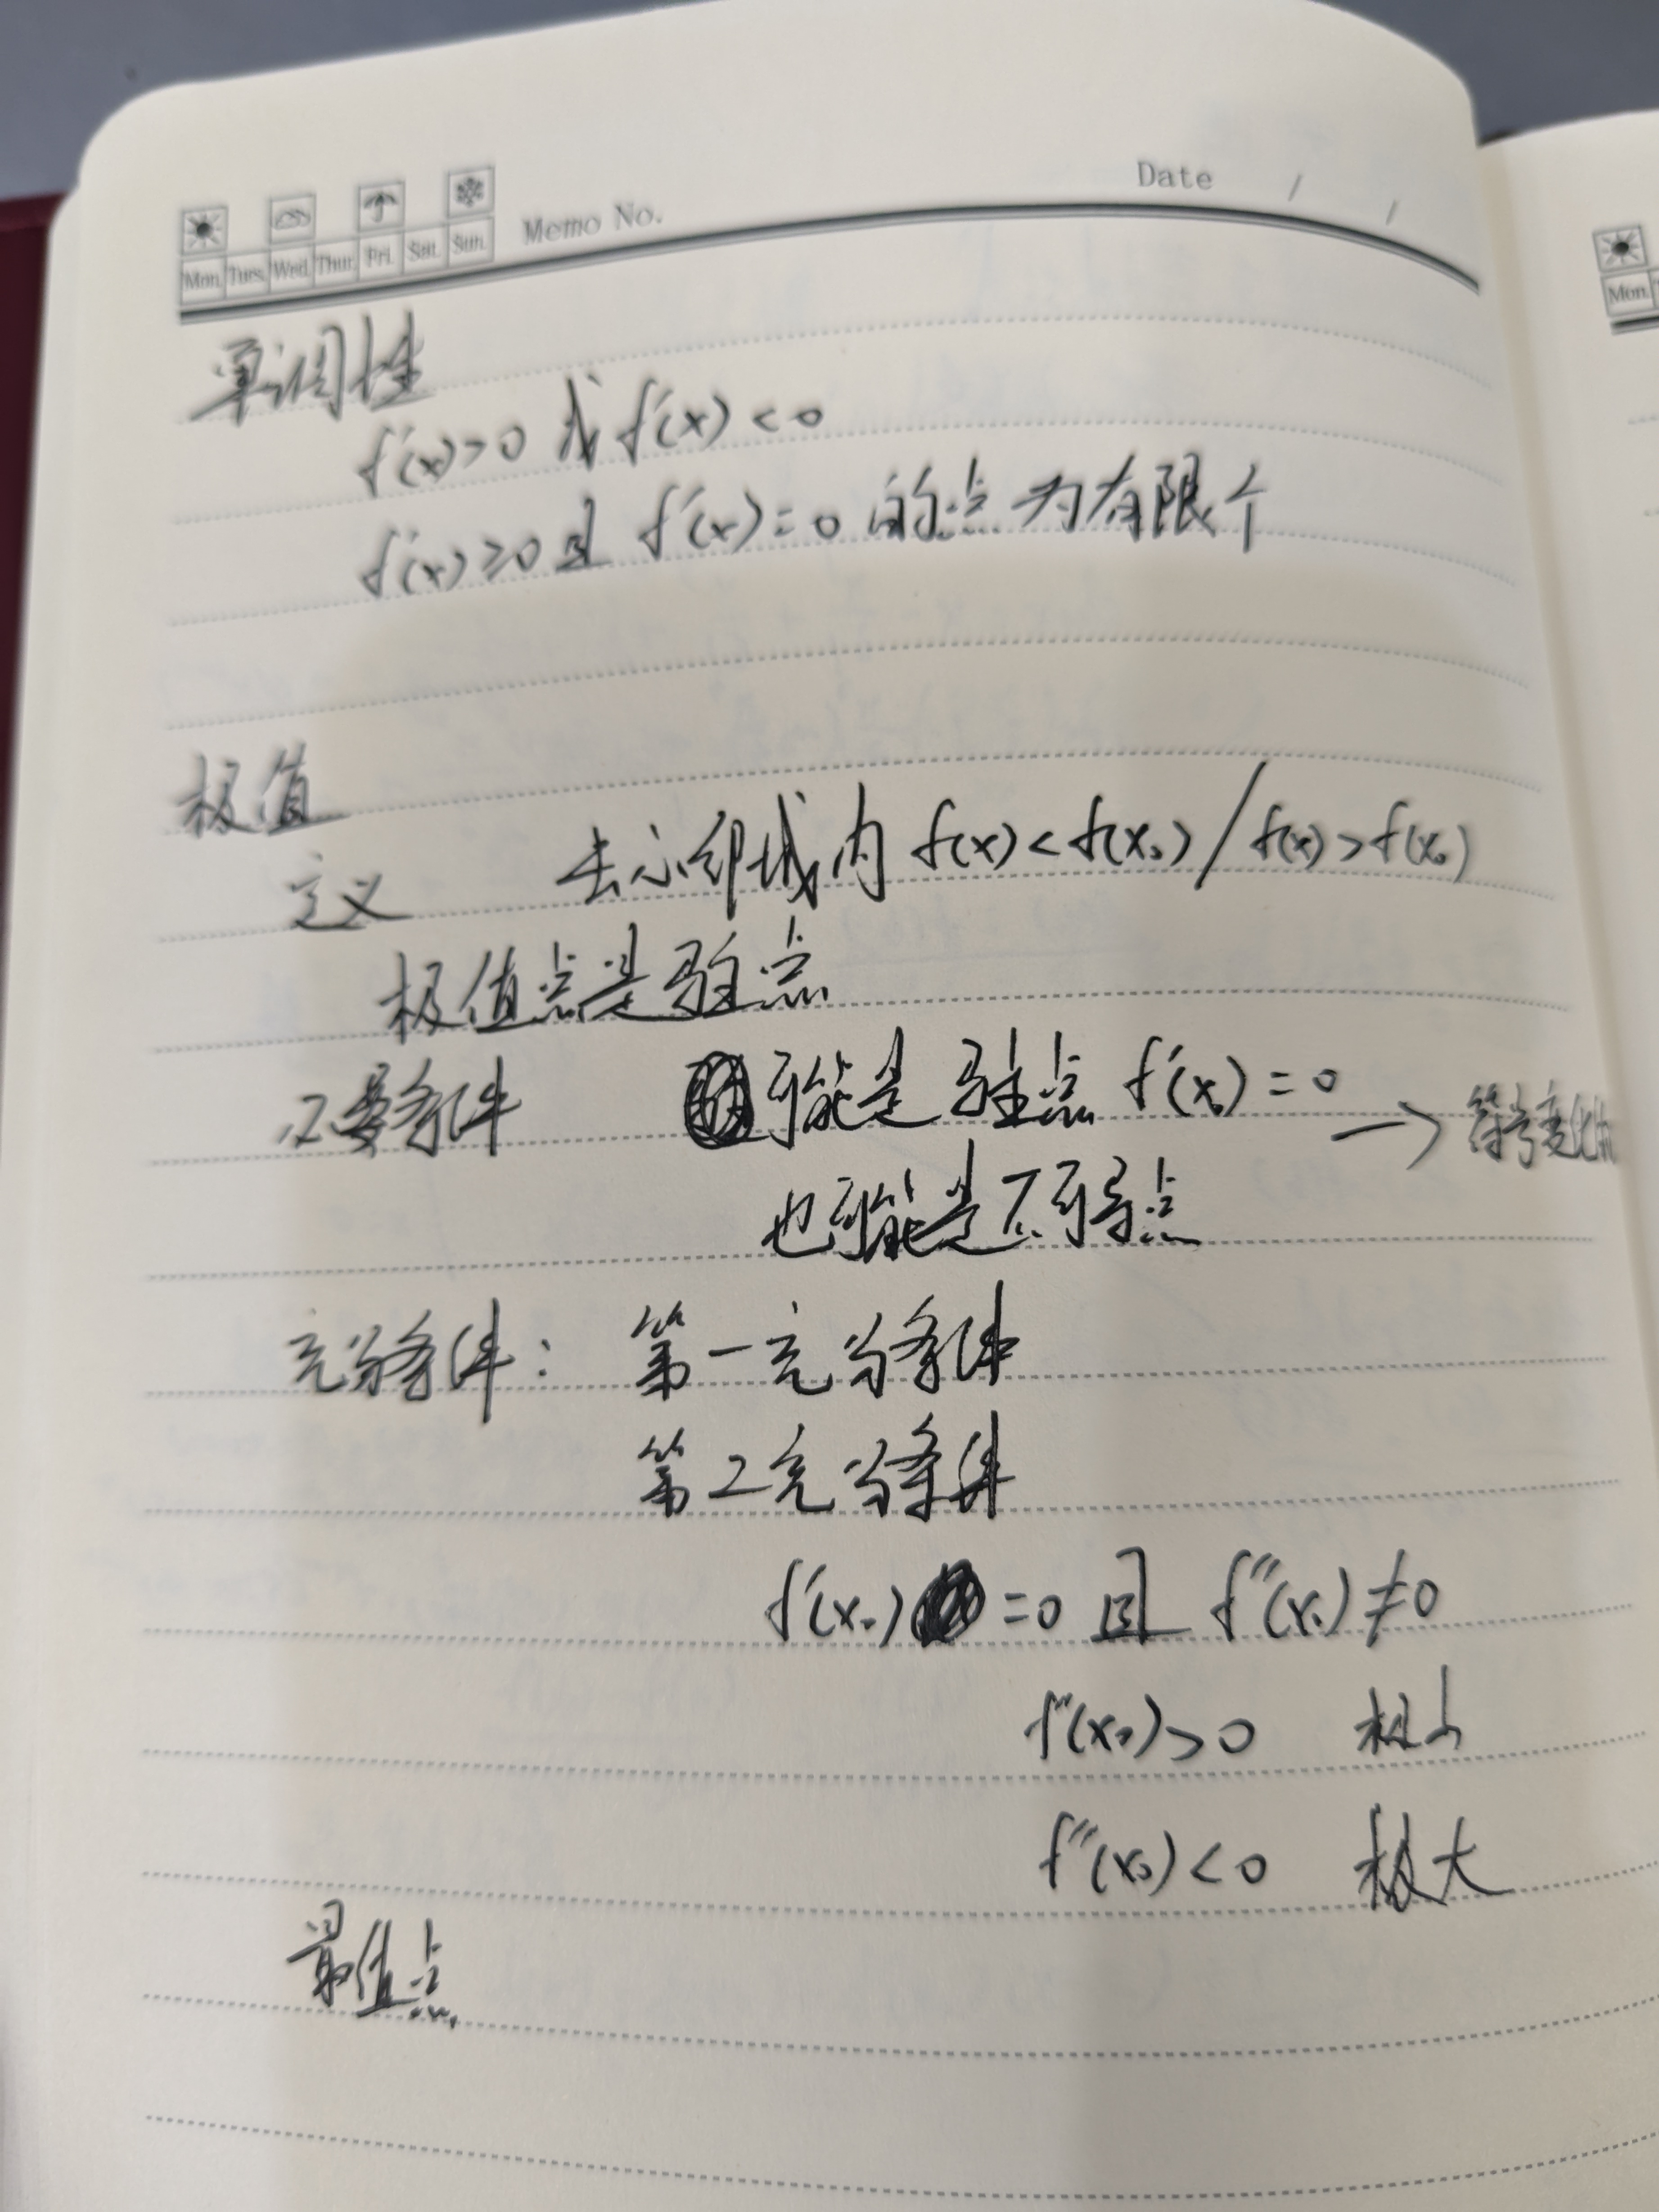 Date / /
Mon. Tues. Wed. Thur. Fri. Sat. Sun. Memo No.
Mon.
单调性
f'(x)>0 或 f'(x)<0
f'(x)≥0且 f'(x)=0 的点为有限个
极值
定义 去心邻域内 f(x)<f(x₀)/f(x)>f(x₀)
极值点是驻点
必要条件 可能是驻点 f'(x₀)=0 → 符号变化
也可能是不可导点
充分条件: 第一充分条件
第2充分条件
f'(x₀)=0 且 f''(x₀)≠0
f''(x₀)>0 极小
f''(x₀)<0 极大
最值点